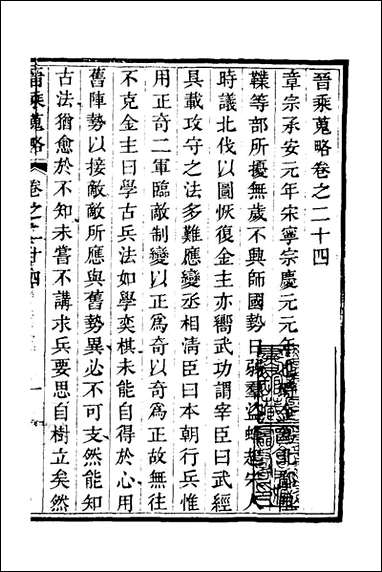 晉乘蒐略卷之二十四
章宗承安元年宋寧宗慶元元年
鞢等部所擾無歲不興師國勢日弱羣盜蜂起宋人
時議北伐以圖恢復金主亦嚮武功謂宰臣曰武經
具載攻守之法多難應變丞相淸臣曰本朝行兵惟
用正奇二軍臨敵制變以正爲奇以奇爲正故無往
不克金主曰學古兵法如學奕棋未能自得於心用
舊陣勢以接敵敵所應與舊勢異必不可支然能知
古法猶愈於不知未嘗不講求兵要思自樹立矣然
晉乘蒐略 卷之二十四 一